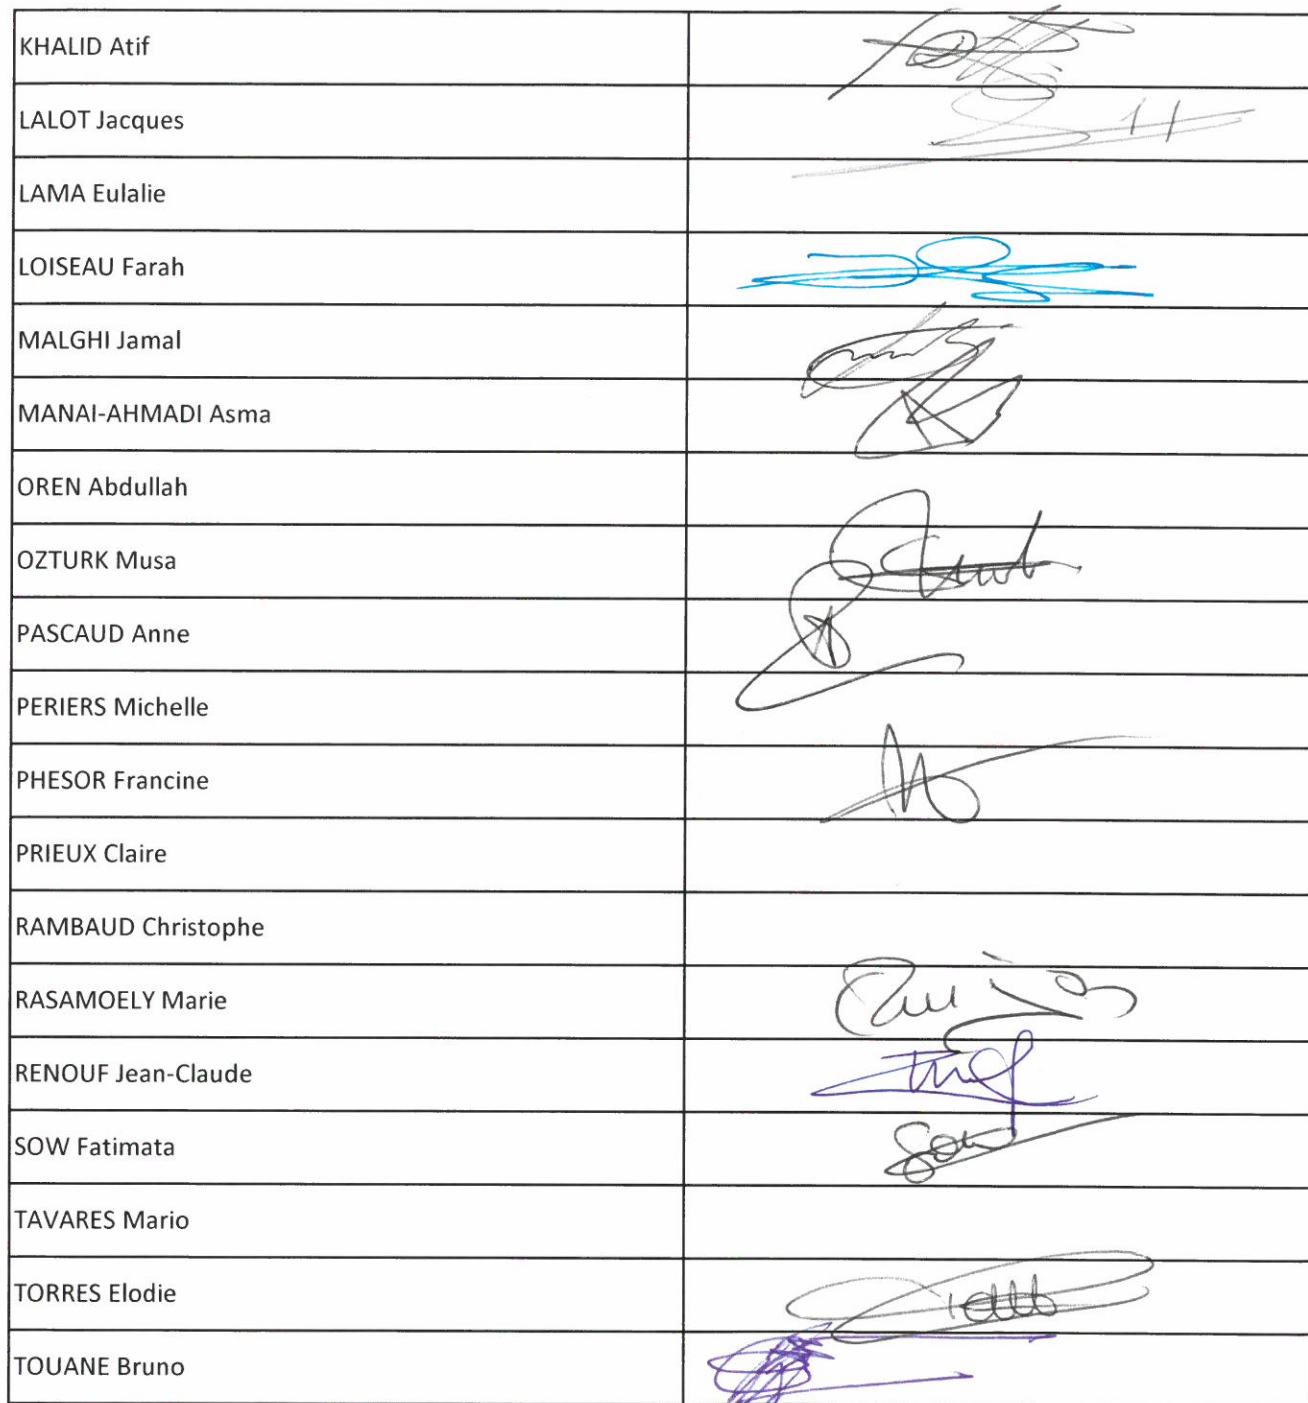 KHALID Atif
LALOT Jacques
LAMA Eulalie
LOISEAU Farah
MALGHI Jamal
MANAI-AHMADI Asma
OREN Abdullah
OZTURK Musa
PASCAUD Anne
PERIERS Michelle
PHESOR Francine
PRIEUX Claire
RAMBAUD Christophe
RASAMOELY Marie
RENOUF Jean-Claude
SOW Fatimata
TAVARES Mario
TORRES Elodie
TOUANE Bruno